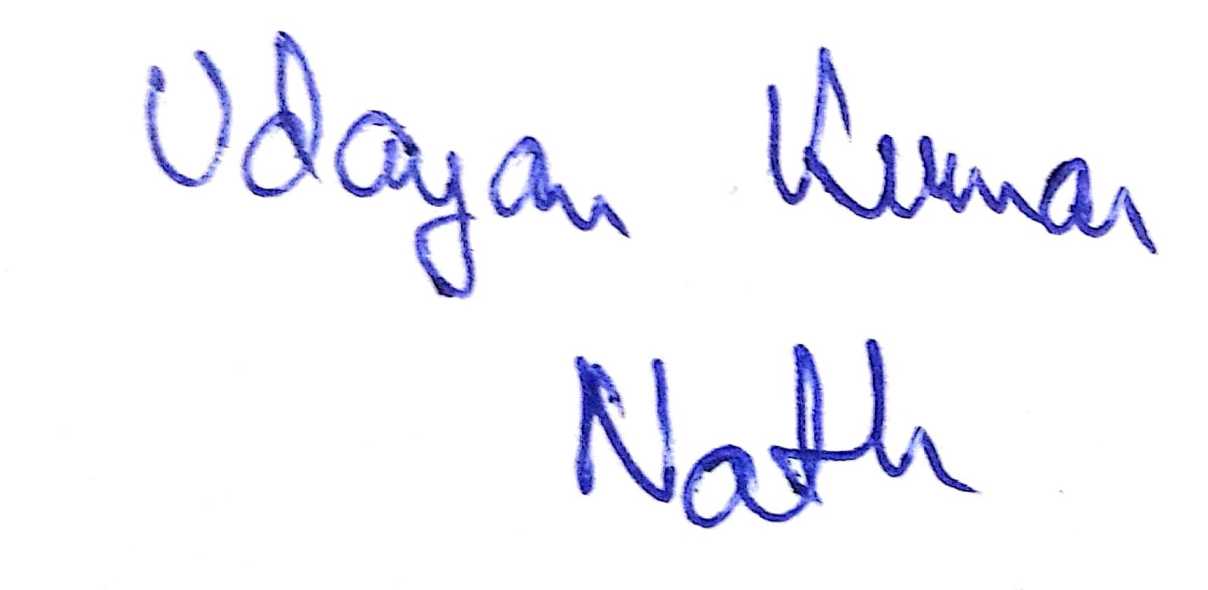 Udayan Kumar
Nath